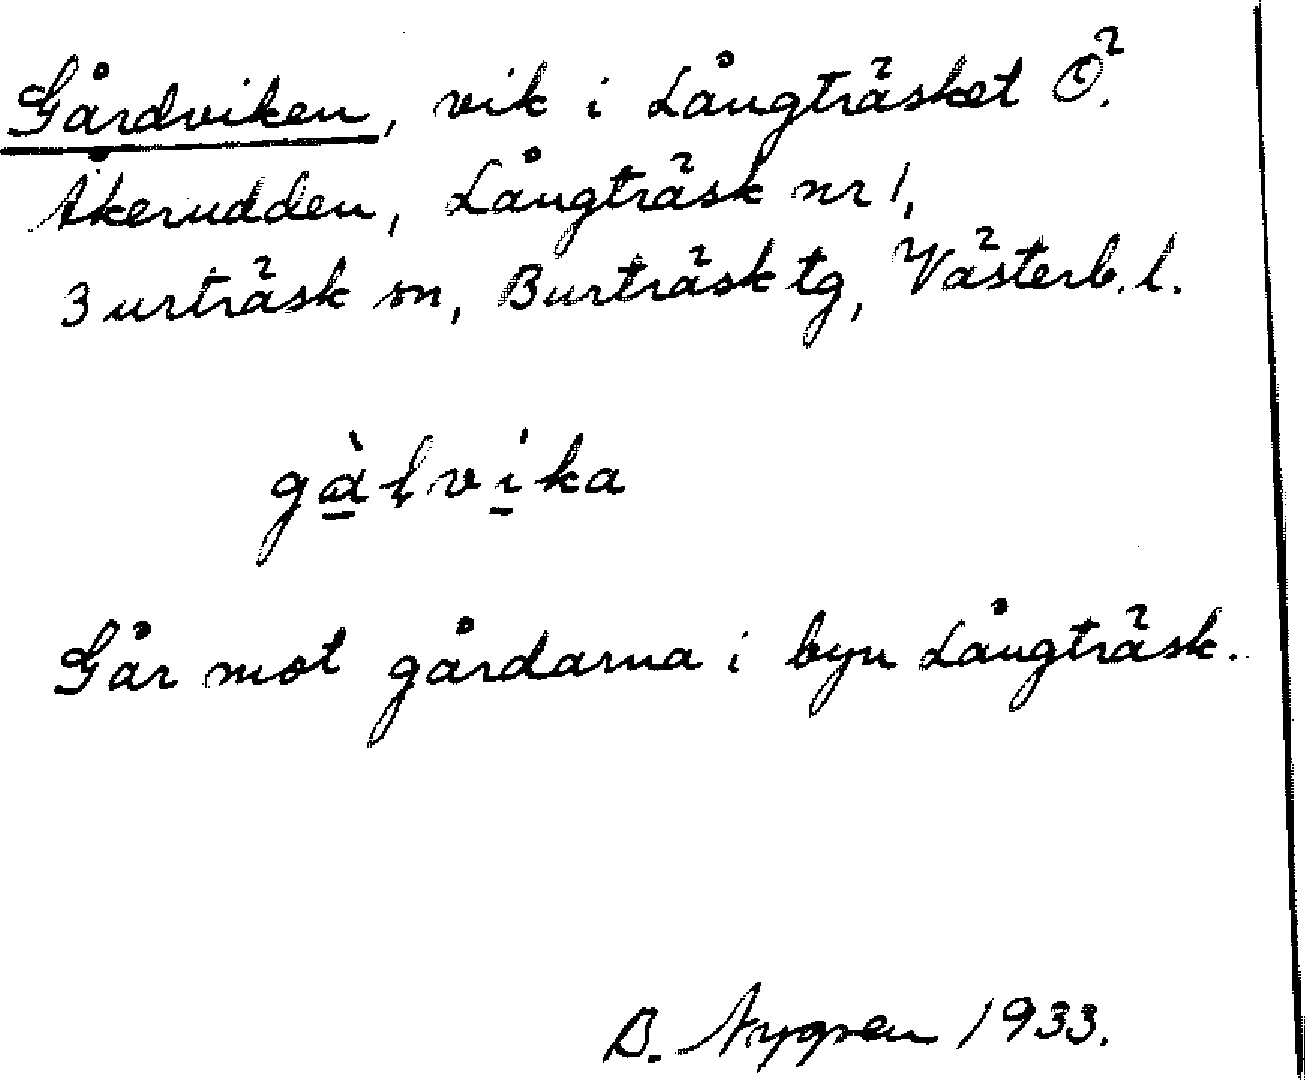 Gårdviken, vik i Långträsket Ö.
Åkerudden, Långträsk nr 1,
Burträsk sn, Burträsk tg, Västerb. l.
gà̱ɫvi̱ka
Går mot gårdarna i byn Långträsk.
B. Nygren 1933.